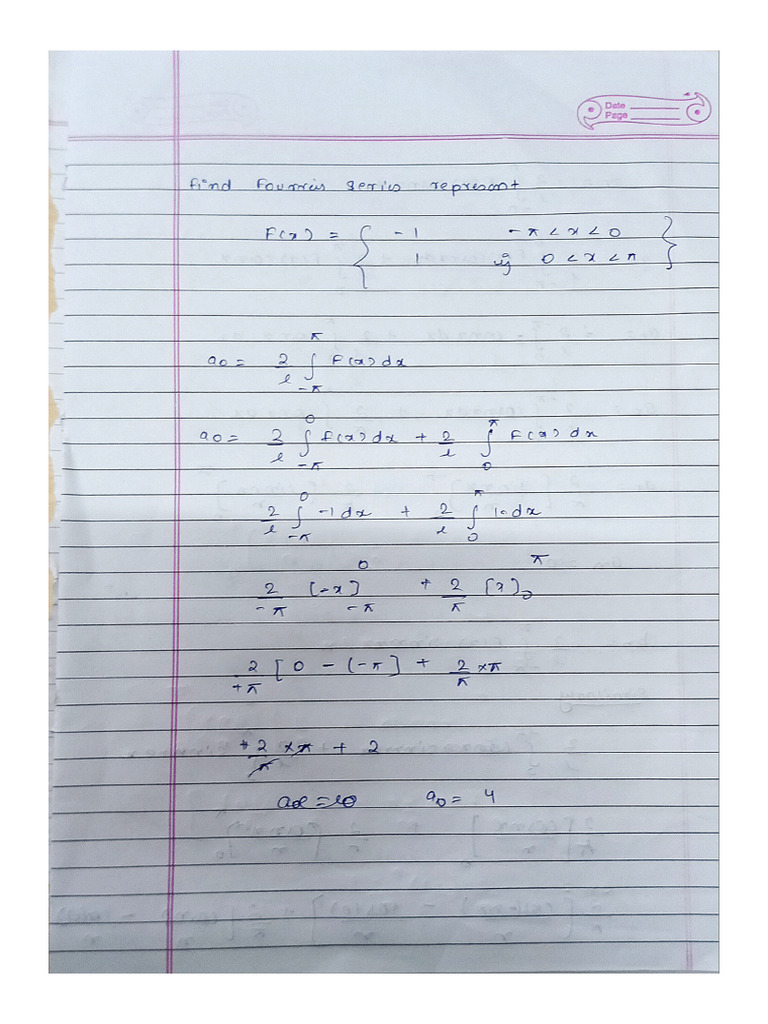 Date
Page
find Fourris series represent
F(x) = { -1 -π < x < 0
1 if 0 < x < π }
a0 = 2/l ∫_{-π}^{π} F(x) dx
a0 = 2/l ∫_{-π}^{0} F(x) dx + 2/l ∫_{0}^{π} F(x) dx
2/l ∫_{-π}^{0} -1 dx + 2/l ∫_{0}^{π} 1. dx
2/-π [-x]_{-π}^{0} + 2/π [x]_{0}^{π}
2/+π [0 - (-π] + 2/π × π
+2/π × π + 2
a0 = 4